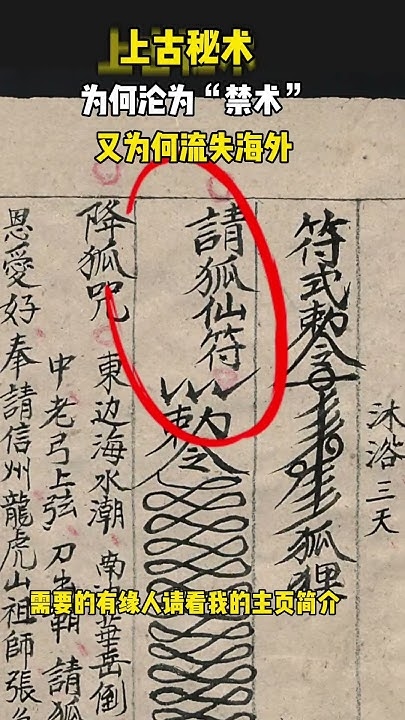 上古秘术
为何沦为“禁术”
又为何流失海外
沐浴三天
符式敕令 狐狸
請狐仙符
敕令
降狐咒 東边海水潮 南 華岳倒
中老弓上弦 刀 請狐
恩愛好奉請信州龍虎山祖師張
需要的有缘人请看我的主页简介